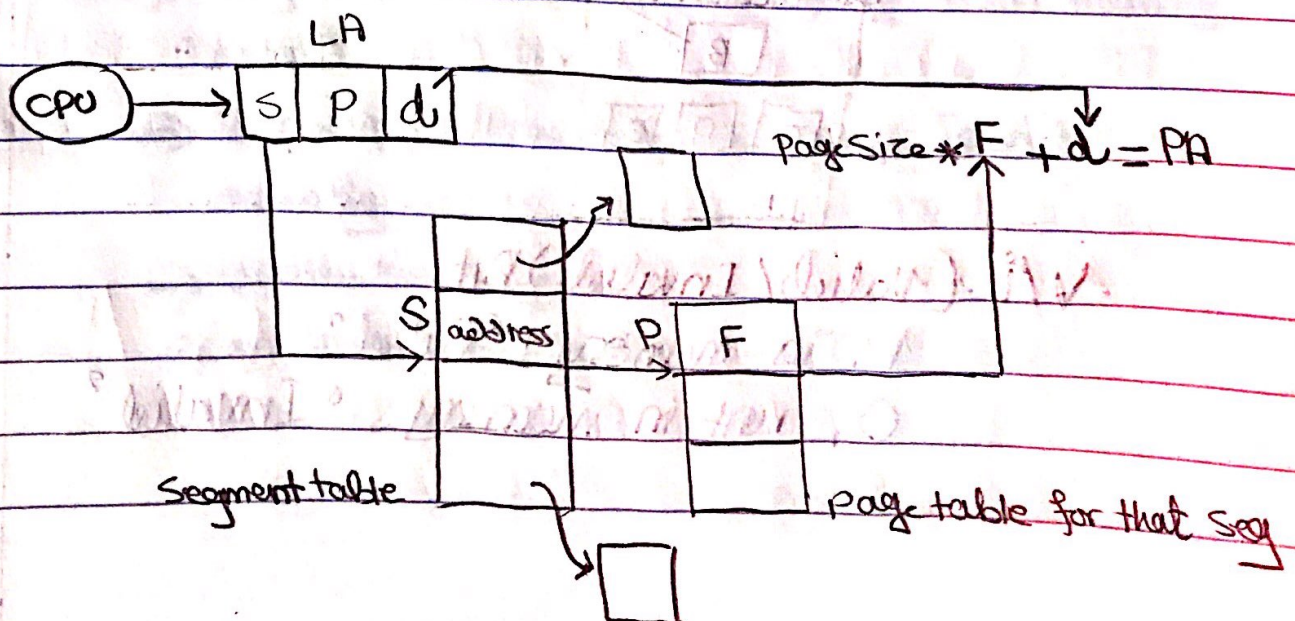 LA
CPU
S P d
PageSize * F + d = PA
S address P F
Segment table
page table for that Seg